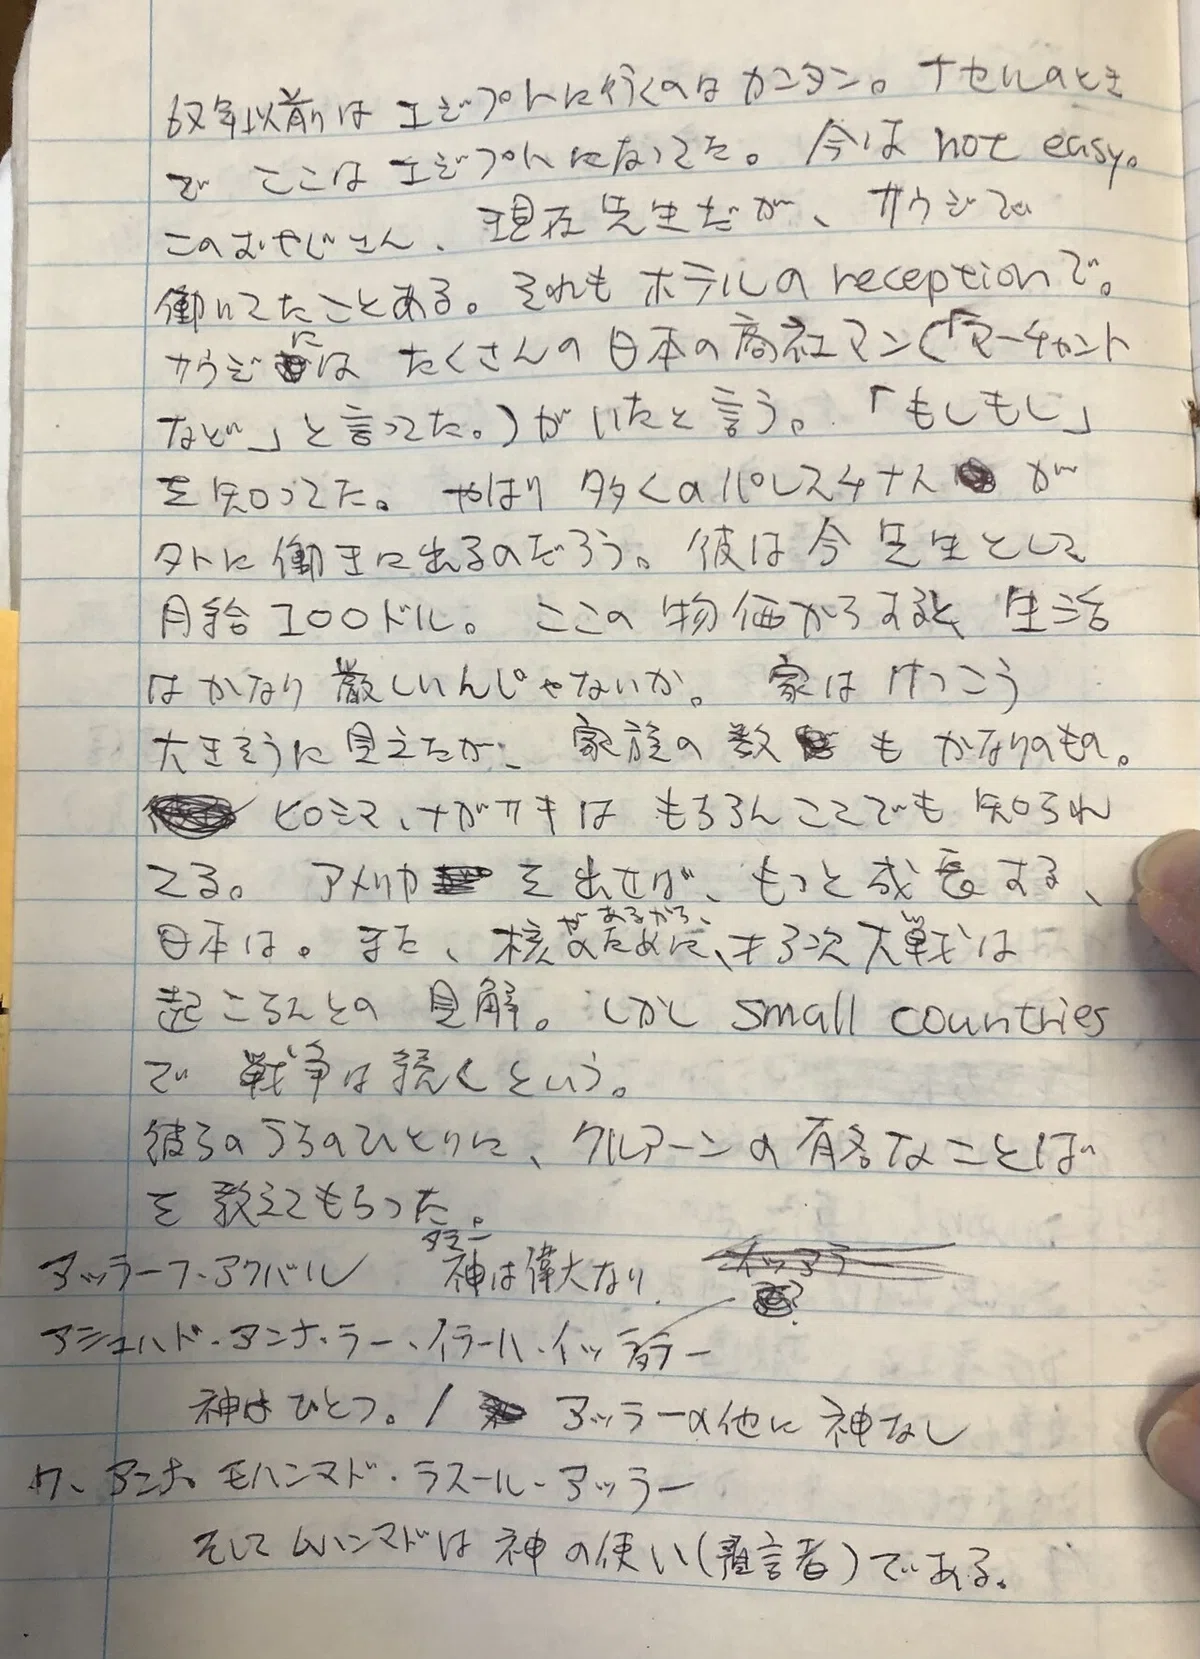 67年以前はエジプトに行くのはカンタン。ナセルのとき
で ここはエジプトになってた。今は not easy。
このおやじさん、現在先生だが、サウジで
働いてたことある。それもホテルの receptionで。
サウジにはたくさんの日本の商社マン(「マーチャント
など」と言ってた。)がいたと言う。「もしもし」
を知ってた。やはり多くのパレスチナ人が
外に働きに出るのだろう。彼は今先生として
月給100ドル。ここの物価からすると、生活
はかなり厳しいんじゃないか。家はけっこう
大きそうに見えたが、家族の数もかなりのもの。
ヒロシマ、ナガサキはもちろんここでも知られ
てる。アメリカを出せば、もっと成長する、
日本は。また、核があるから、才3次大戦は
起こらんとの見解。しかし small countries
で 戦争は続くという。
彼らのうちのひとりに、クルアーンの有名なことば
を教えてもらった。
アッラーフ・アクバル 神は偉大なり
アシュハド・アンナ・ラー・イラーハ・イッラッラー
神はひとつ。/ アッラーの他に神なし
ワ、アンナ・モハンマド・ラスール・アッラー
そしてムハンマドは神の使い(預言者)である。